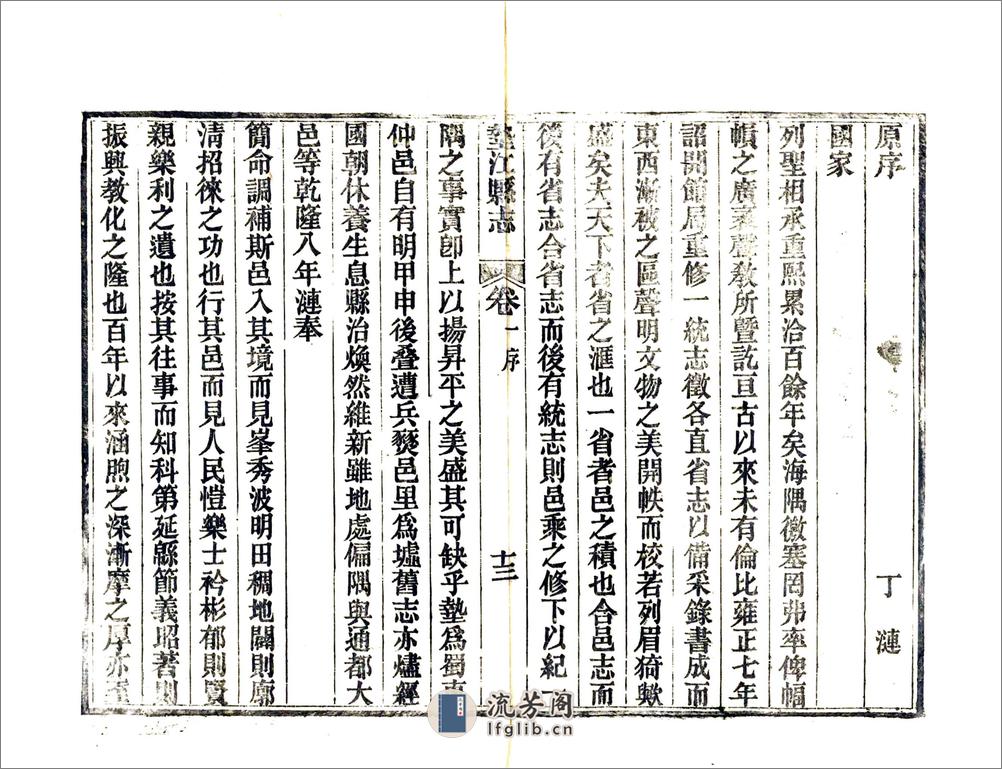 原序　丁漣
國家
列聖相承重熙累洽百餘年矣海隅徼塞罔弗率俾幅
幀之廣袤聲教所暨訖亘古以來未有倫比雍正七年
詔開館局重修一統志徵各直省志以備采錄書成而
東西漸被之區聲明文物之美開帙而校若列眉猗歟
盛矣夫天下者省之滙也一省者邑之積也合邑志而
後有省志合省志而後有統志則邑乘之修下以紀一
墊江縣志　卷一　序　十三
隅之事實卽上以揚昇平之美盛其可缺乎墊爲蜀東
仲邑自有明甲申後叠遭兵燹邑里爲墟舊志亦燼經
國朝休養生息縣治煥然維新雖地處偏隅與通都大
邑等乾隆八年漣奉
簡命調補斯邑入其境而見峯秀波明田稠地闢則廓
淸招徠之功也行其邑而見人民愷樂士衿彬郁則賢
親樂利之遺也按其往事而知科第延緜節義昭著則
振興教化之隆也百年以來涵煦之深漸摩之厚亦至
流芳阁
lfglib.cn